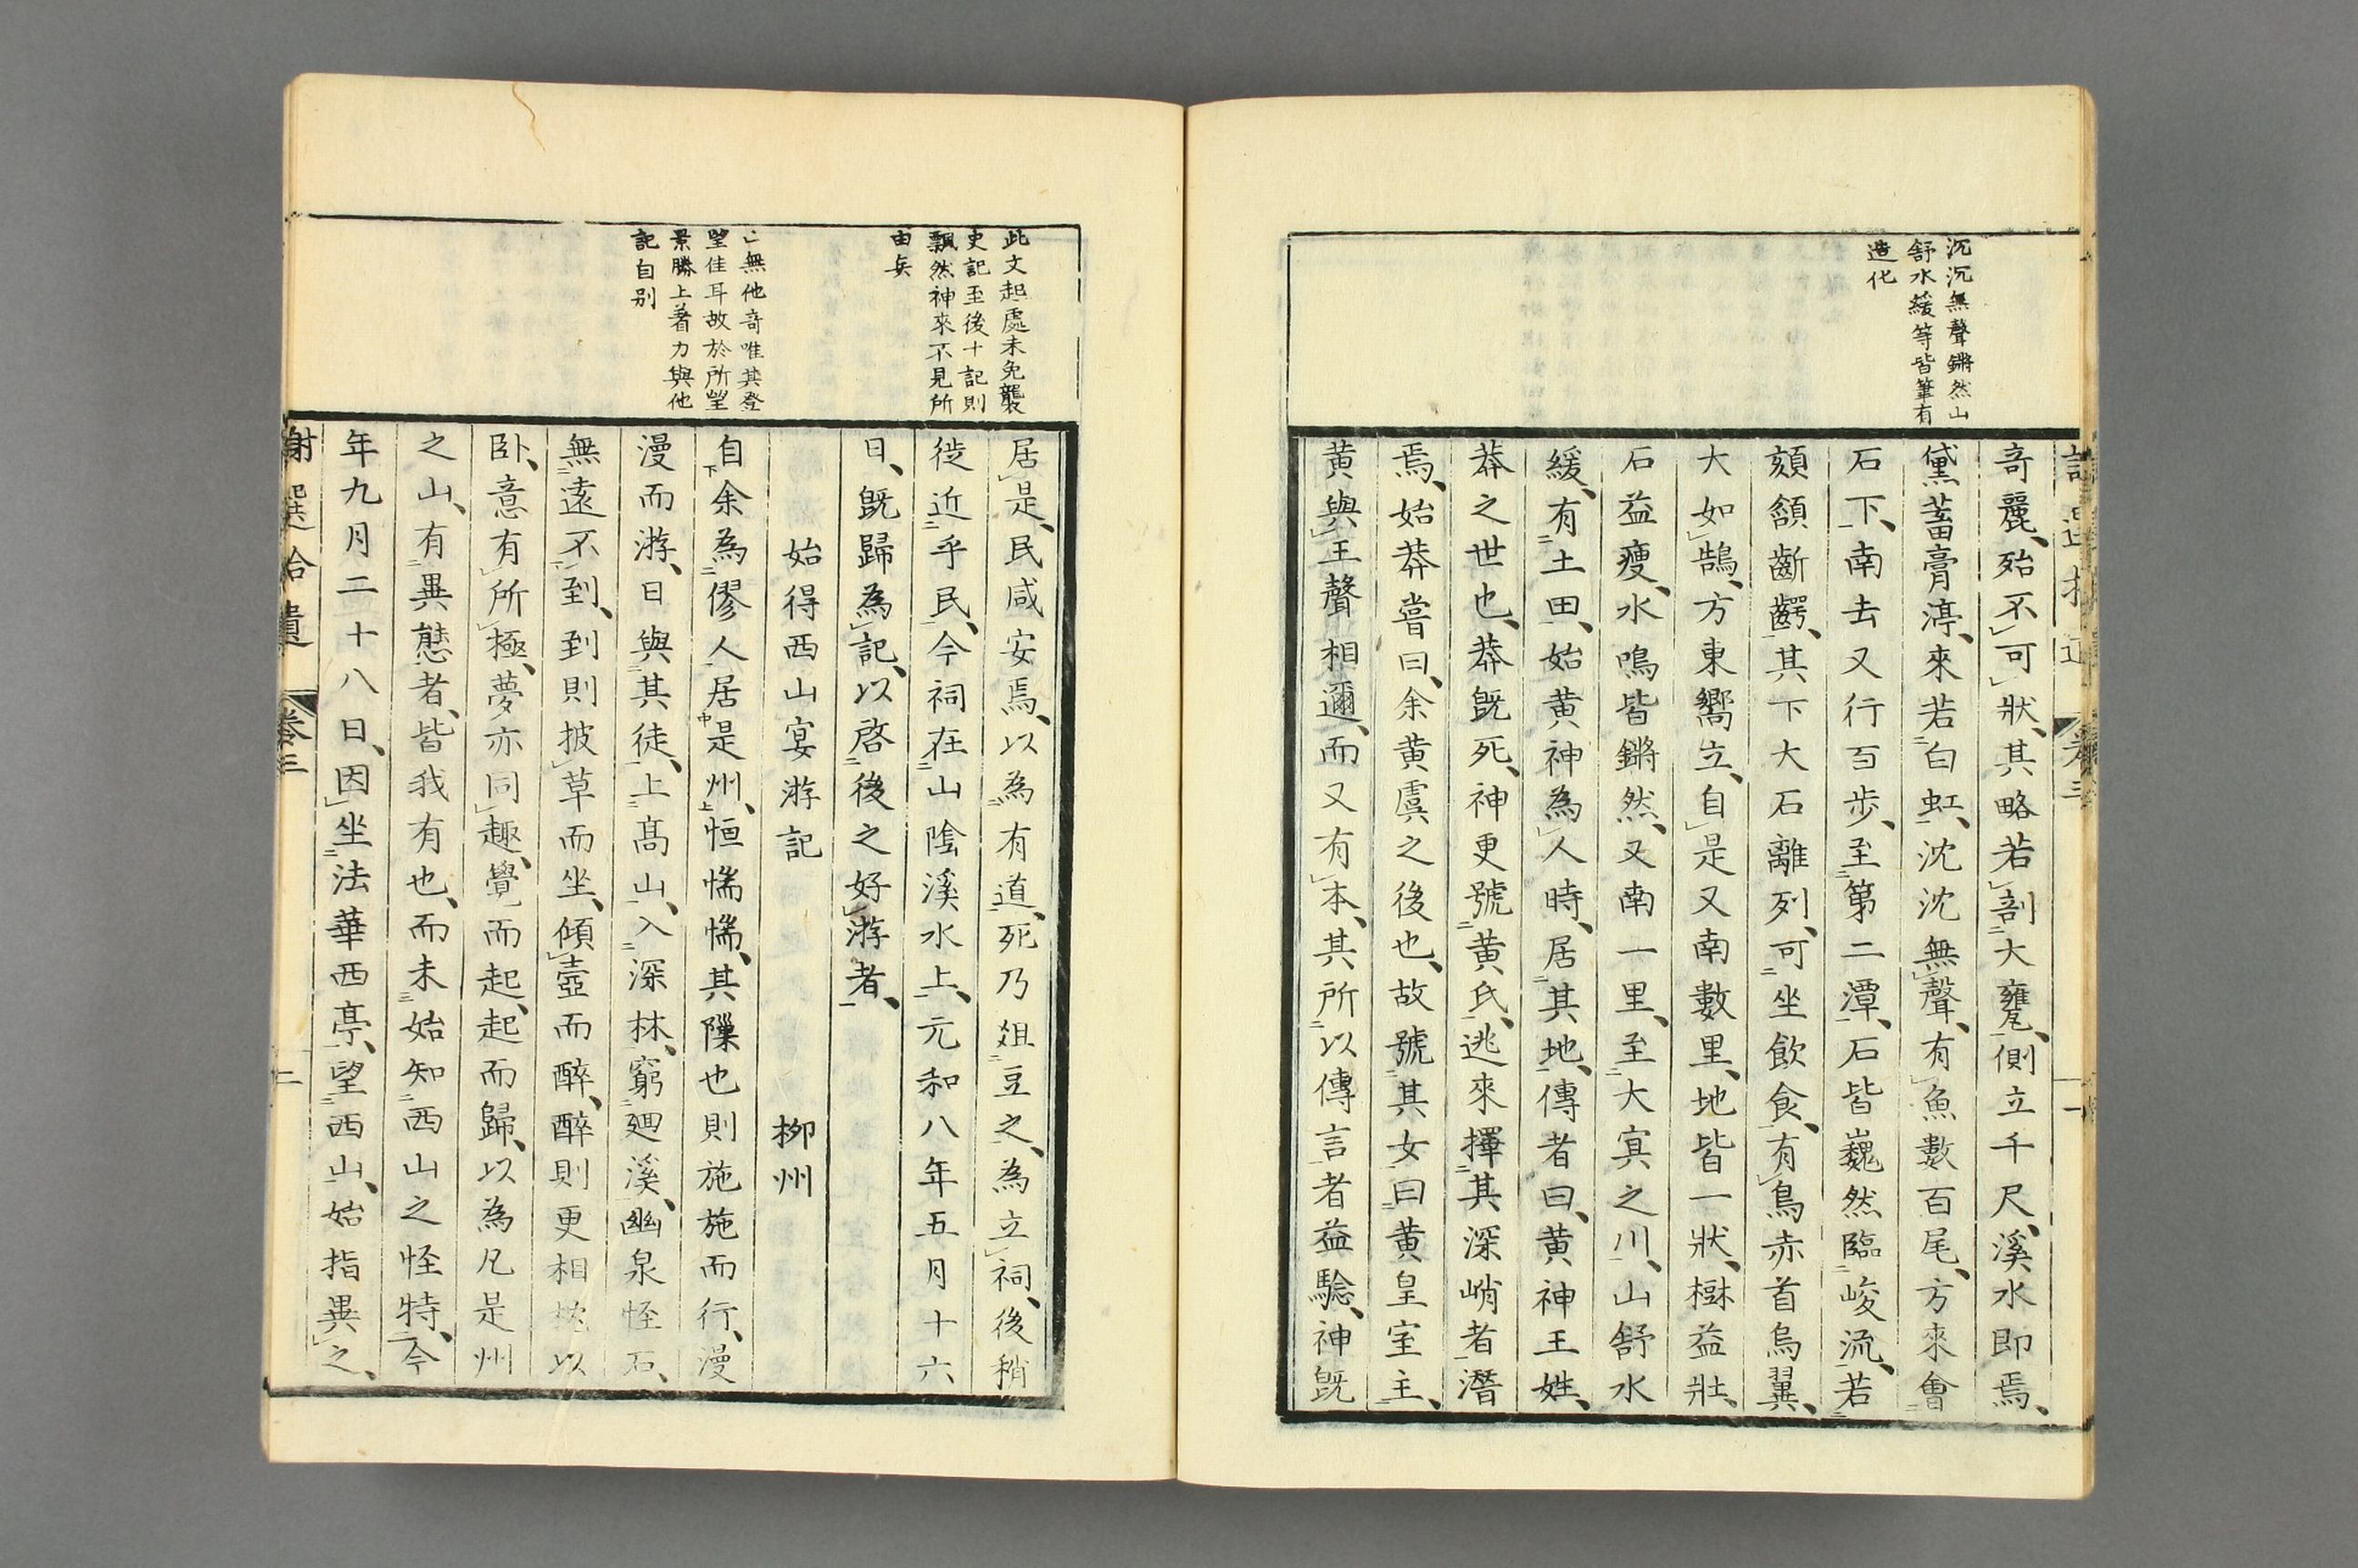 沉沉無聲鏘然山
舒水緩等皆筆有
造化
奇麗、殆不可狀、其略若剖大甕、側立千尺、溪水即焉、
黛蓄膏渟、來若白虹、沈沈無聲、有魚數百尾、方來會
石下、南去又行百步、至第二潭、石皆巍然臨峻流、若
頦頷齗齶、其下大石離列、可坐飲食、有鳥赤首烏翼、
大如鵠、方東嚮立、自是又南數里、地皆一狀、樹益壯、
石益瘦、水鳴皆鏘然、又南一里、至大冥之川、山舒水
緩、有土田、始黃神為人時、居其地、傳者曰、黃神王姓、
莽之世也、莽既死、神更號黃氏、逃來擇其深峭者潛
焉、始莽嘗曰、余黃虞之後也、故號其女曰黃皇室主、
黃與王聲相邇、而又有本、其所以傳言者益驗、神既
此文起處未免襲
史記至後十記則
飄然神來不見所
由矣
無他奇唯其登
望佳耳故於所望
景勝上著力與他
記自別
居是、民咸安焉、以為有道、死乃俎豆之、為立祠、後稍
徙近乎民、今祠在山陰溪水上、元和八年五月十六
日、既歸為記、以啓後之好游者、
始得西山宴游記　柳州
自余為僇人居是州、恒惴惴、其隟也則施施而行、漫
漫而游、日與其徒、上高山、入深林、窮廻溪、幽泉怪石、
無遠不到、到則披草而坐、傾壺而醉、醉則更相枕以
臥、意有所極、夢亦同趣、覺而起、起而歸、以為凡是州
之山、有異態者、皆我有也、而未始知西山之怪特、今
年九月二十八日、因坐法華西亭、望西山、始指異之、
謝選拾遺　卷三　二